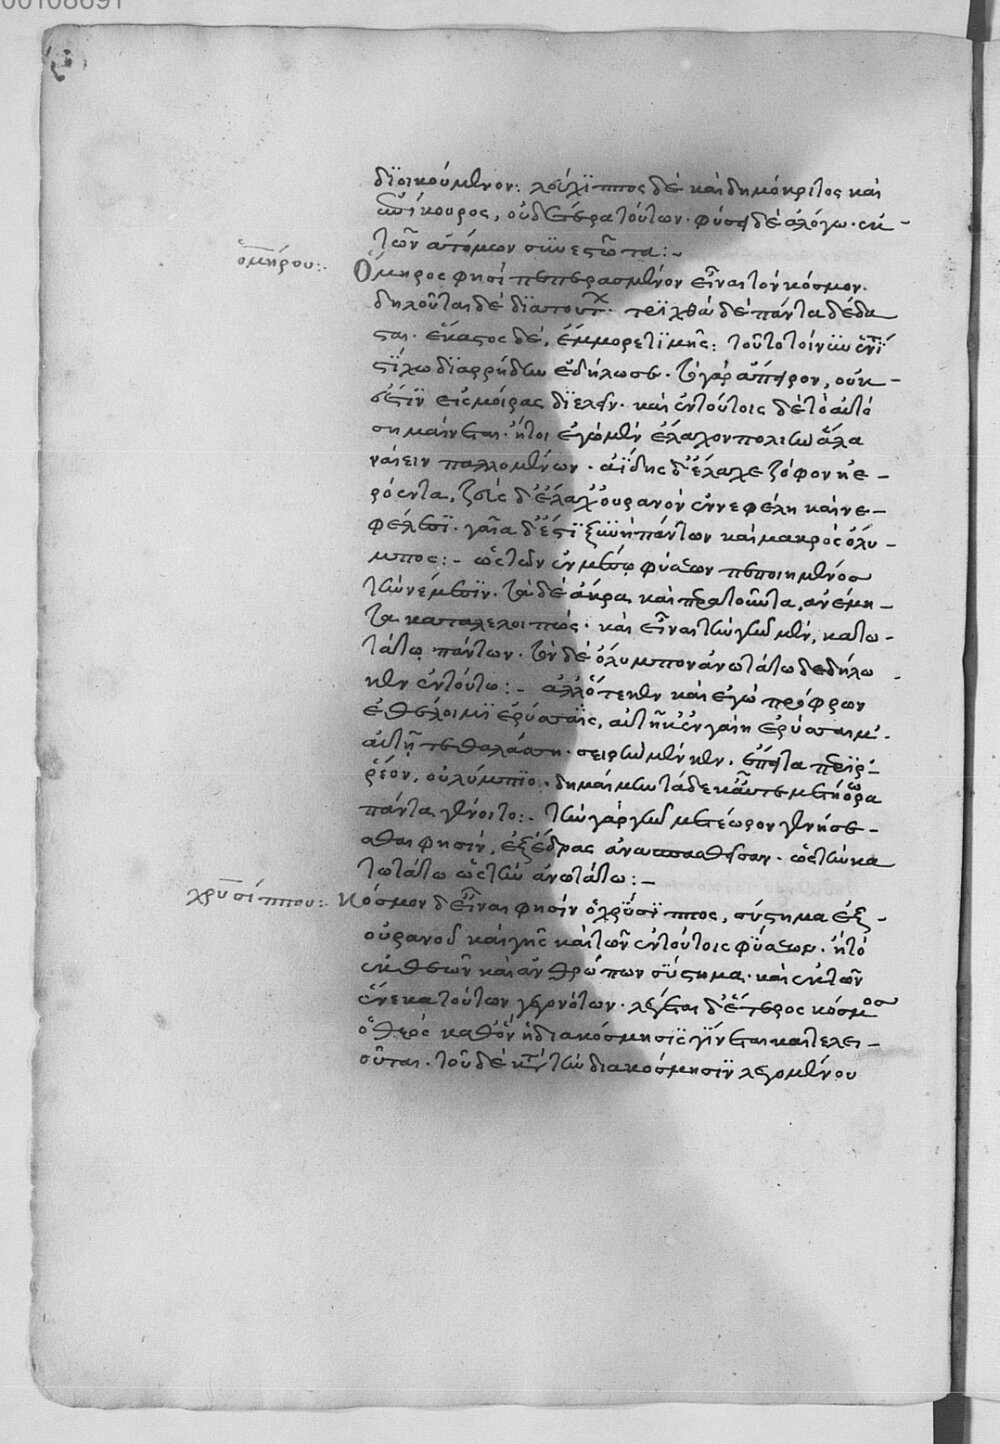 00108691
διοικούμενον: λεύκιππος δὲ καὶ δημόκριτος καὶ
ἐπίκουρος, οὐδέτερα τούτων· φύσει δὲ ἀλόγω· ἐκ -
τῶν ἀτόμων συνεστῶτα: -
ὁμήρου:·
Ὅμηρος φησὶ πεπερασμένον εἶναι τὸν κόσμον.
δηλοῦται δὲ διὰ τούτων· τριχθὰ δὲ πάντα δέδα
σται· ἕκαστος δὲ, ἔμμορε τιμῆς: τοῦτο τοίνυν ἐν τῷ
στίχω διαρρήδην ἐδήλωσε· τὸ γὰρ ἄπειρον, οὐκ -
ἔστιν εἰς μοίρας διελεῖν· καὶ ἐν τούτοις δὲ τὸ αὐτὸ
σημαίνεται· ἤτοι ἐγὼ μὲν ἔλαχον πολιὴν ἅλα
ναίειν παλλομένων· ἀΐδης δ' ἔλαχε ζόφον ἠε -
ρόεντα, ζεὺς δ' ἔλαχ' οὐρανὸν ἐν νεφέλη καὶ νε -
φέλεσι· γαῖα δ' ἔστι ξυνὴ πάντων καὶ μακρὸς ὀλύ -
μπος: - ὡς τῶν ἐν μέσω φύσεων πεποιημένος
τὴν νέμεσιν· τὰ δὲ ἄκρα καὶ περατοῦντα, ἀνέμη -
τα καταλελοιπώς· καὶ εἶναι τὴν γῆν μὲν, κατω -
τάτω πάντων· τὸν δὲ ὄλυμπον ἀνωτάτω δεδήλω -
κεν ἐν τούτω: - ἀλλ' ὅτε κεν καὶ ἐγὼ πρόφρων
ἐθέλοιμι ἐρύσσαις, αὐτῆ κ' ἐν γαίη ἐρύσαιμ'.
αὐτῆ τε θαλάσση· σειρὴν μέν κεν, ἔπειτα περὶ
ῥέον, οὐλύμπιο· δησαίμην τὰ δέ κ' αὖτε μετήορα
πάντα γένοιτο: - τὴν γὰρ γῆν μετέωρον γενήσε -
σθαι φησὶν, ἐξ ἕδρας ἀνασπασθεῖσαν· ὡς τὴν κα
τωτάτω ὡς τὴν ἀνωτάτω: -
χρυσίππου:·
Κόσμον δ' εἶναι φησὶν ὁ χρύσιππος, σύστημα ἐξ -
οὐρανοῦ καὶ γῆς καὶ τῶν ἐν τούτοις φύσεων· ἢ τὸ
ἐκ θεῶν καὶ ἀνθρώπων σύστημα· καὶ ἐκ τῶν
ἕνεκα τούτων γεγονότων· λέγεται δ' ἕτερος κόσμος
ὁ θεὸς καθ' ὃν ἡ διακόσμησις γίνεται καὶ τελει -
οῦται· τοῦ δὲ κατὰ τὴν διακόσμησιν λεγομένου